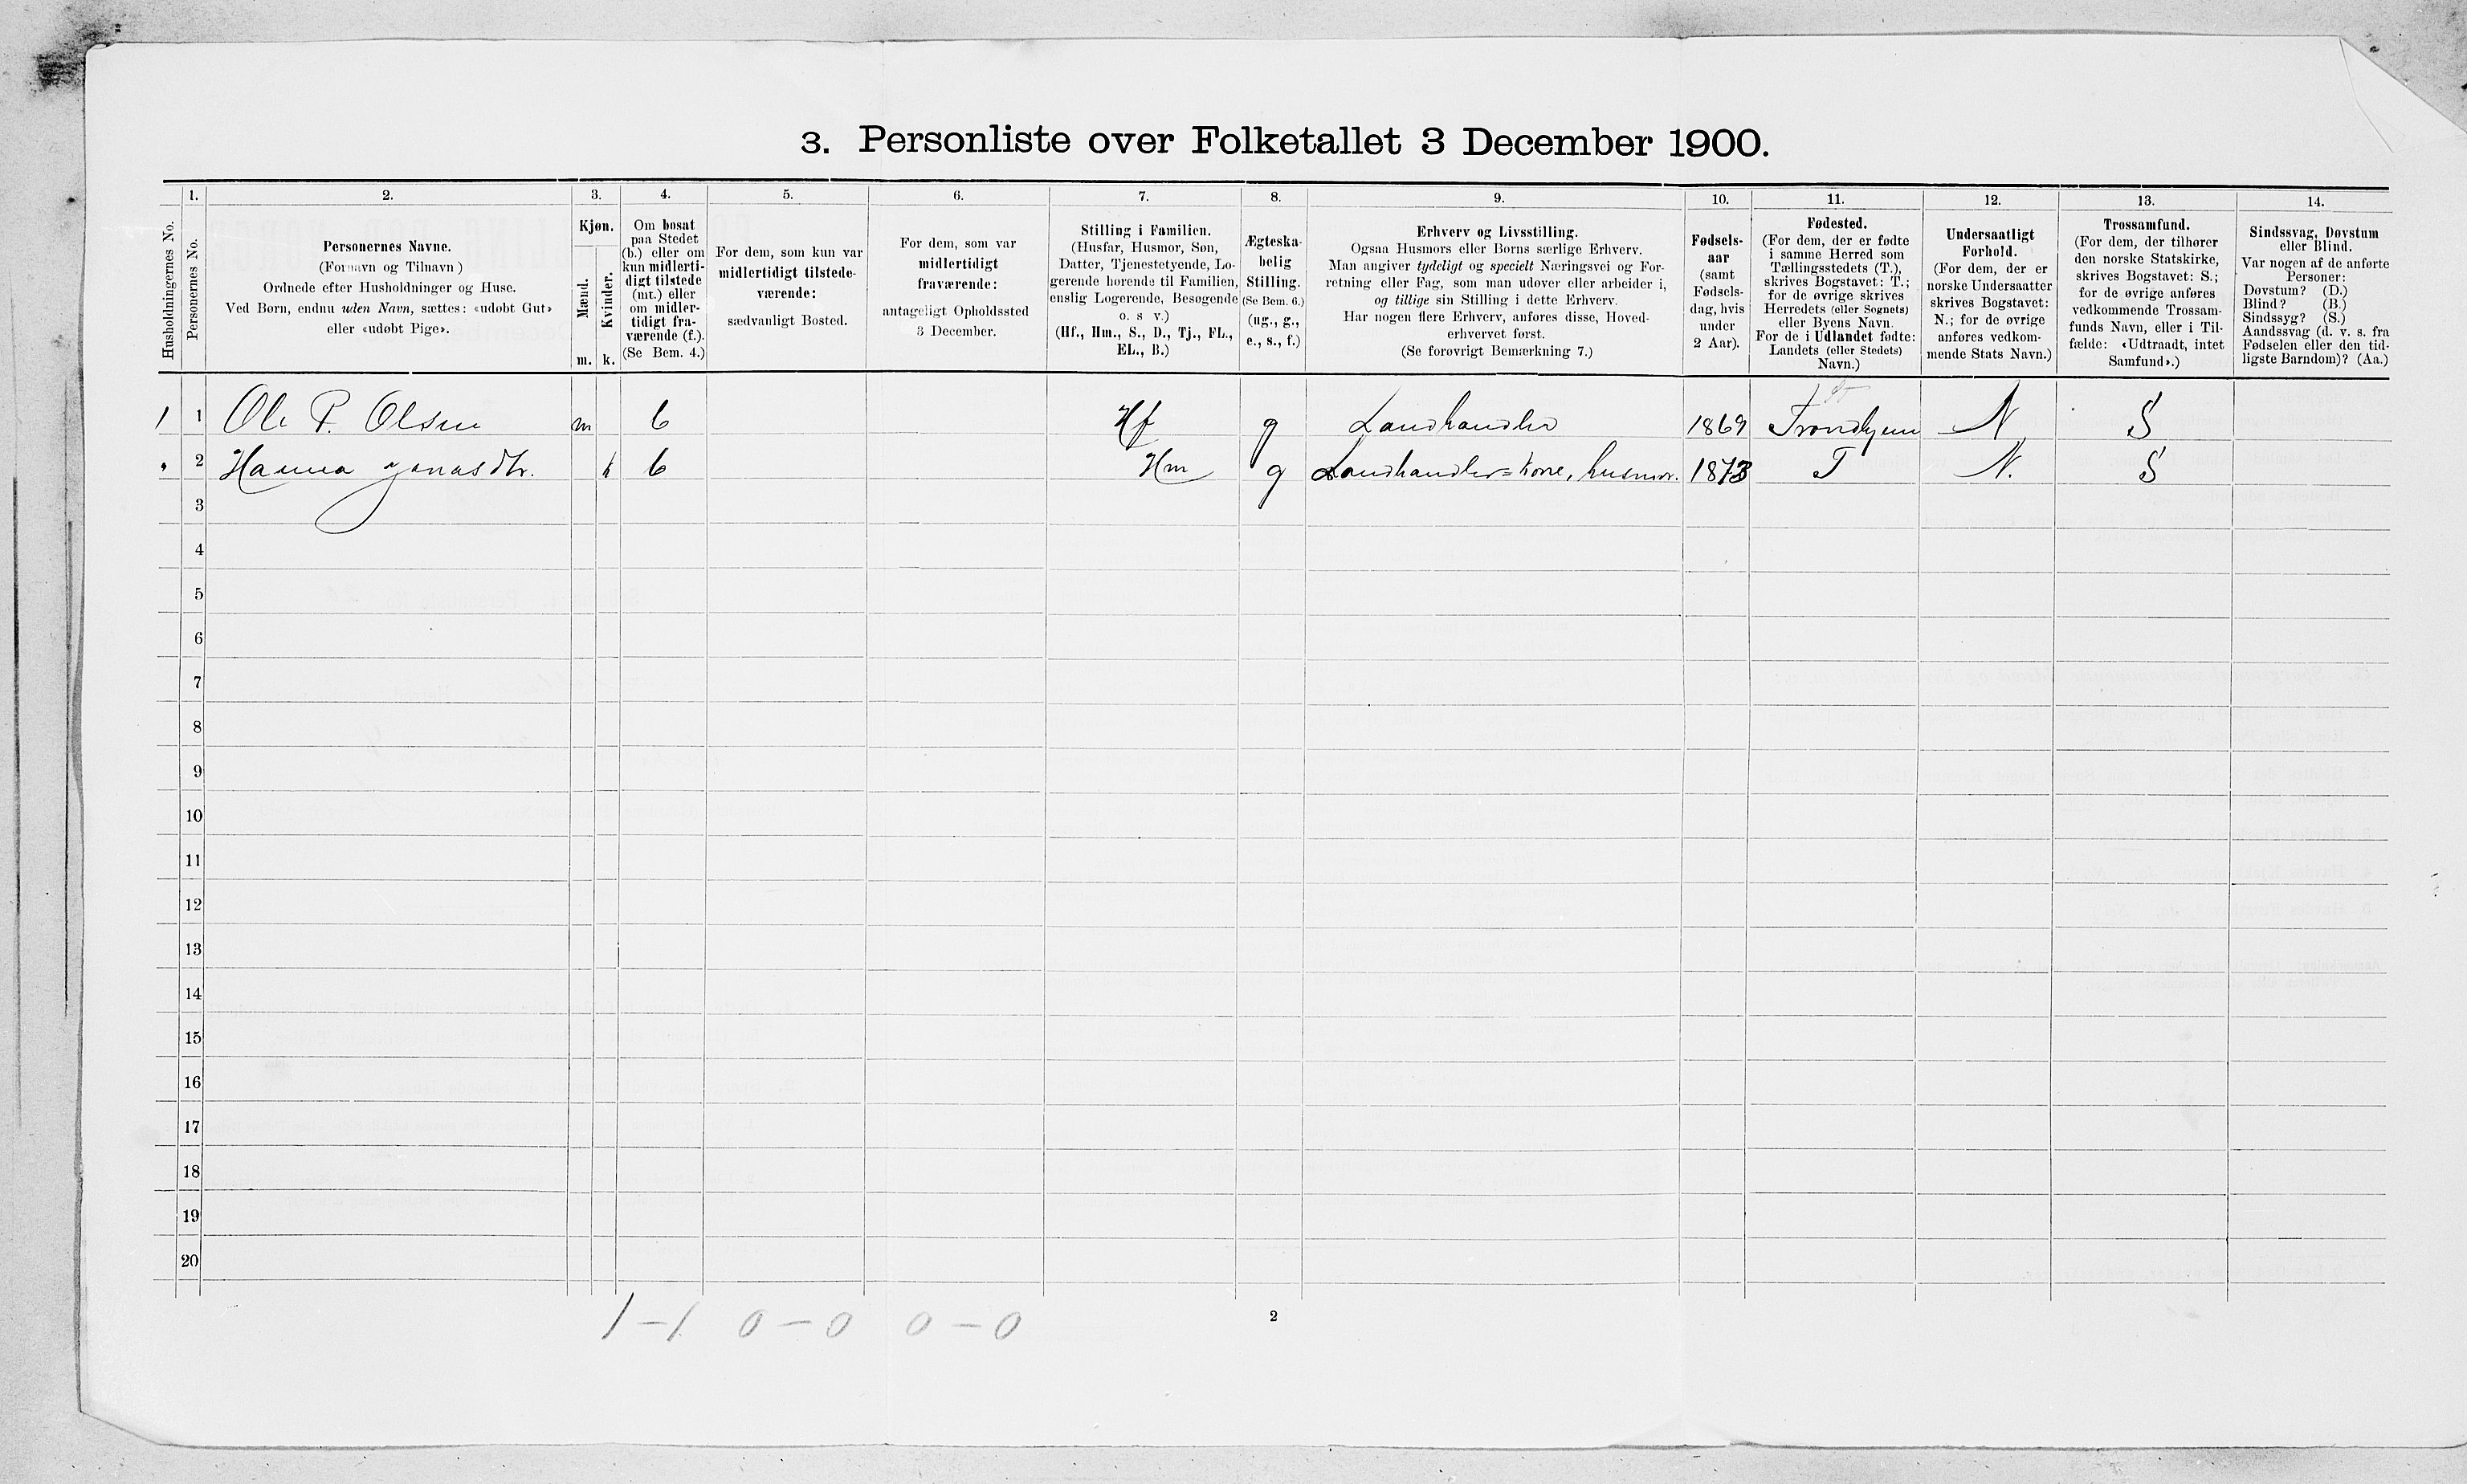 3. Personliste over Folketallet 3 December 1900.
1. 2. 3. 4. 5. 6. 7. 8. 9. 10. 11. 12. 13. 14.
Husholdningernes No.
Personernes No.
Personernes Navne.
(Fornavn og Tilnavn)
Ordnede efter Husholdninger og Huse.
Ved Børn, endnu uden Navn, sættes: «udøbt Gut»
eller «udøbt Pige».
Kjøn.
Mænd.
Kvinder.
m. k.
Om bosat
paa Stedet
(b.) eller om
kun midlerti-
digt tilstede
(mt.) eller
om midler-
tidigt fra-
værende (f.).
(Se Bem. 4.)
For dem, som kun var
midlertidigt tilstede-
værende:
sædvanligt Bosted.
For dem, som var
midlertidigt
fraværende:
antageligt Opholdssted
3 December.
Stilling i Familien.
(Husfar, Husmor, Søn,
Datter, Tjenestetyende, Lo-
gerende hørende til Familien,
enslig Logerende, Besøgende
o. s v.)
(Hf., Hm., S., D., Tj., FL.,
EL., B.)
Ægteska-
belig
Stilling.
(Se Bem. 6.)
(ug., g.,
e., s., f.)
Erhverv og Livsstilling.
Ogsaa Husmors eller Børns særlige Erhverv.
Man angiver tydeligt og specielt Næringsvei og For-
retning eller Fag, som man udøver eller arbeider i,
og tillige sin Stilling i dette Erhverv.
Har nogen flere Erhverv, anføres disse, Hoved-
erhvervet først.
(Se forøvrigt Bemærkning 7.)
Fødsels-
aar
(samt
Fødsels-
dag, hvis
under
2 Aar).
Fødested.
(For dem, der er fødte
i samme Herred som
Tællingsstedets (T.),
skrives Bogstavet: T.;
for de øvrige skrives
Herredets (eller Sognets)
eller Byens Navn.
For de i Udlandet fødte:
Landets (eller Stedets)
Navn.)
Undersaatligt
Forhold.
(For dem, der er
norske Undersaatter
skrives Bogstavet:
N.; for de øvrige
anføres vedkom-
mende Stats Navn.)
Trossamfund.
(For dem, der tilhører
den norske Statskirke,
skrives Bogstavet: S.;
for de øvrige anføres
vedkommende Trossam-
funds Navn, eller i Til-
fælde: «Udtraadt, intet
Samfund».)
Sindssvag, Døvstum
eller Blind.
Var nogen af de anførte
Personer:
Døvstum? (D.)
Blind? (B.)
Sindssyg? (S.)
Aandssvag (d. v. s. fra
Fødselen eller den tid-
ligste Barndom)? (Aa.)
1 1 Ole P. Olsen m b Hf g Landhandler 1869 Trondhjem N S
" 2 Hanna Jonasdtr. k b Hm g Landhandler=kone, husmor. 1873 T N. S
3
4
5
6
7
8
9
10
11
12
13
14
15
16
17
18
19
20
1 – 1 0 – 0 0 – 0
2